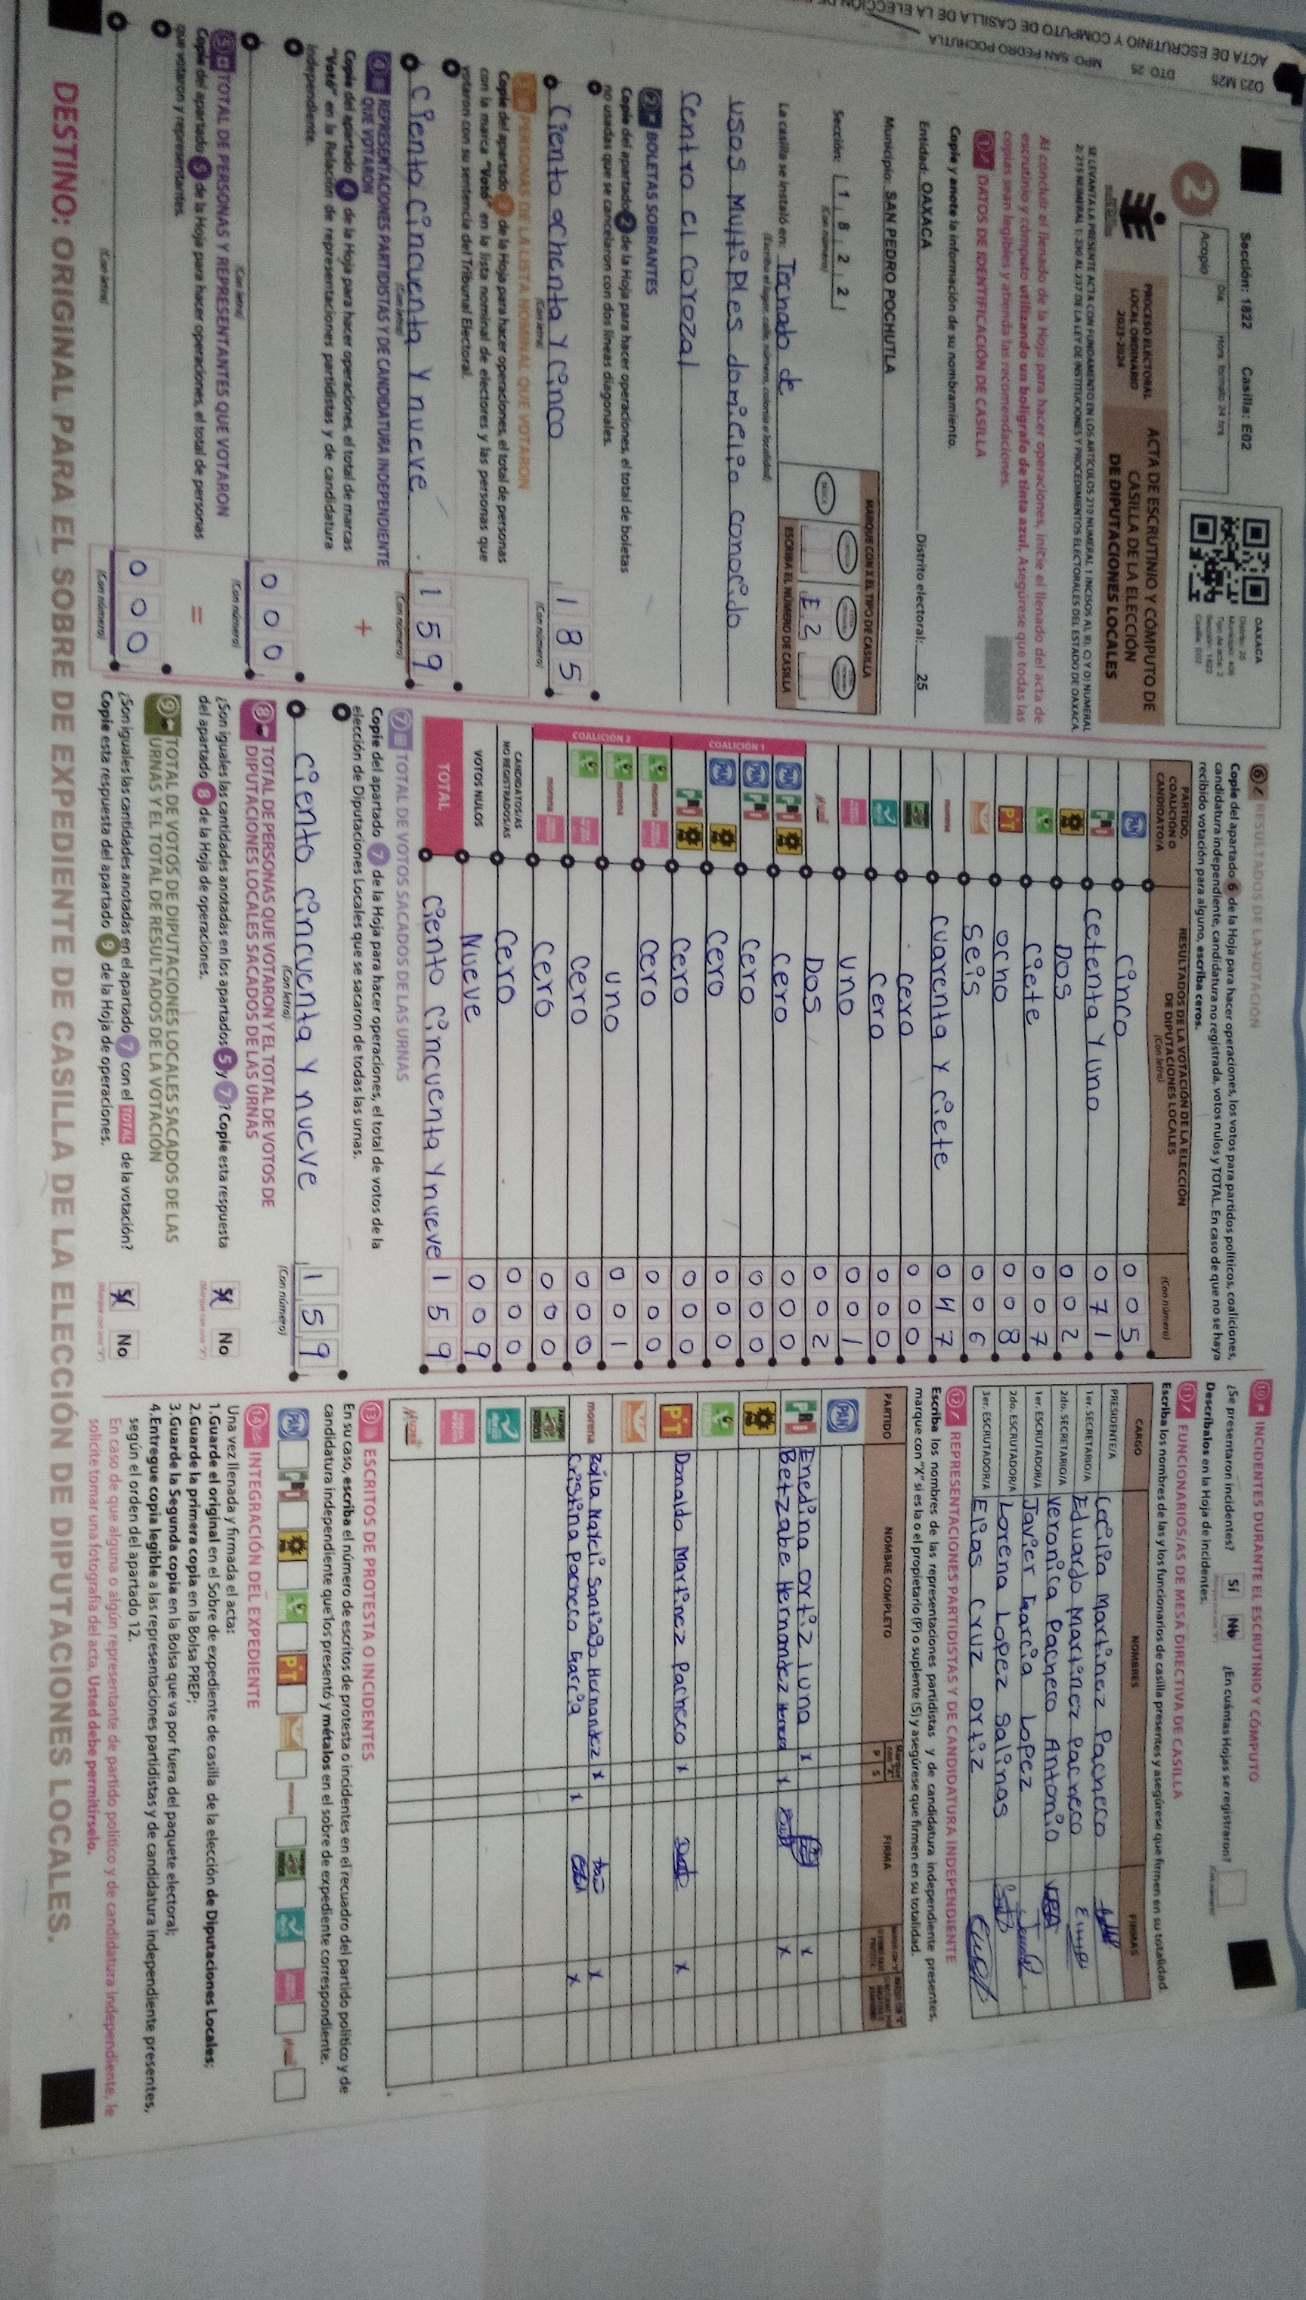 ACTA DE ESCRUTINIO Y CÓMPUTO DE CASILLA DE LA ELECCIÓN DE
D23 M25 DTO 25 MPO SAN PEDRO POCHUTLA
Sección: 1822 Casilla: E02
2
Acopio
Día Hora, formato 24 hrs
OAXACA
PROCESO ELECTORAL
LOCAL ORDINARIO
2023-2024
ACTA DE ESCRUTINIO Y CÓMPUTO DE
CASILLA DE LA ELECCIÓN
DE DIPUTACIONES LOCALES
Al concluir el llenado de la Hoja para hacer operaciones, inicie el llenado del acta de
escrutinio y cómputo utilizando un bolígrafo de tinta azul. Asegúrese que todas las
copias sean legibles y atienda las recomendaciones.
1 DATOS DE IDENTIFICACIÓN DE CASILLA
Copie y anote la información de su nombramiento.
Entidad: OAXACA Distrito electoral: 25
Municipio: SAN PEDRO POCHUTLA
Sección: 1 8 2 2
(Con número)
MARQUE CON X EL TIPO DE CASILLA
ESCRIBA EL NÚMERO DE CASILLA
E 2
La casilla se instaló en: Tecnado de
(Escriba el lugar, calle, número, colonia o localidad)
usos Multiples domicilio conocido
Centro el corozal
2 BOLETAS SOBRANTES
Copie del apartado 2 de la Hoja para hacer operaciones, el total de boletas
no usadas que se cancelaron con dos líneas diagonales.
Ciento ochenta y cinco 1 8 5
(Con letra) (Con número)
3 PERSONAS DE LA LISTA NOMINAL QUE VOTARON
Copie del apartado 3 de la Hoja para hacer operaciones, el total de personas
con la marca "Votó" en la lista nominal de electores y las personas que
votaron con su sentencia del Tribunal Electoral.
Ciento cincuenta y nueve 1 5 9
(Con letra) (Con número)
4 REPRESENTACIONES PARTIDISTAS Y DE CANDIDATURA INDEPENDIENTE
QUE VOTARON
Copie del apartado 4 de la Hoja para hacer operaciones, el total de marcas
"Votó" en la Relación de representaciones partidistas y de candidatura
independiente.
+
0 0 0
(Con letra) (Con número)
5 TOTAL DE PERSONAS Y REPRESENTANTES QUE VOTARON
Copie del apartado 5 de la Hoja para hacer operaciones, el total de personas
que votaron y representantes.
=
0 0 0
(Con letra) (Con número)
6 RESULTADOS DE LA VOTACIÓN
Copie del apartado 6 de la Hoja para hacer operaciones, los votos para partidos políticos, coaliciones,
candidatura independiente, candidatura no registrada, votos nulos y TOTAL. En caso de que no se haya
recibido votación para alguno, escriba ceros.
PARTIDO, COALICIÓN O CANDIDATO/A
RESULTADOS DE LA VOTACIÓN DE LA ELECCIÓN
DE DIPUTACIONES LOCALES
(Con letra) (Con número)
PAN Cinco 0 0 5
PRI Cetenta y uno 0 7 1
Dos 0 0 2
Ciete 0 0 7
PT ocho 0 0 8
Seis 0 0 6
morena cuarenta y ciete 0 4 7
cero 0 0 0
Cero 0 0 0
uno 0 0 1
Dos 0 0 2
COALICIÓN 1
Cero 0 0 0
Cero 0 0 0
Cero 0 0 0
Cero 0 0 0
COALICIÓN 2
Cero 0 0 0
uno 0 0 1
cero 0 0 0
Cero 0 0 0
CANDIDATOS/AS NO REGISTRADOS/AS Cero 0 0 0
VOTOS NULOS Nueve 0 0 9
TOTAL Ciento cincuenta y nueve 1 5 9
7 TOTAL DE VOTOS SACADOS DE LAS URNAS
Copie del apartado 7 de la Hoja para hacer operaciones, el total de votos de la
elección de Diputaciones Locales que se sacaron de todas las urnas.
Ciento cincuenta y nueve 1 5 9
(Con letra) (Con número)
8 TOTAL DE PERSONAS QUE VOTARON Y EL TOTAL DE VOTOS DE
DIPUTACIONES LOCALES SACADOS DE LAS URNAS
¿Son iguales las cantidades anotadas en los apartados 5 y 7? Copie esta respuesta
del apartado 8 de la Hoja de operaciones.
Sí No
9 TOTAL DE VOTOS DE DIPUTACIONES LOCALES SACADOS DE LAS
URNAS Y EL TOTAL DE RESULTADOS DE LA VOTACIÓN
¿Son iguales las cantidades anotadas en el apartado 7 con el TOTAL de la votación?
Copie esta respuesta del apartado 9 de la Hoja de operaciones.
Sí No
10 INCIDENTES DURANTE EL ESCRUTINIO Y CÓMPUTO
¿Se presentaron incidentes? Sí No ¿En cuántas Hojas se registraron?
Descríbalos en la Hoja de incidentes.
11 FUNCIONARIOS/AS DE MESA DIRECTIVA DE CASILLA
Escriba los nombres de las y los funcionarios de casilla presentes y asegúrese que firmen en su totalidad.
CARGO NOMBRES FIRMAS
PRESIDENTE/A Cecilia Martinez Pacheco
1er. SECRETARIO/A Eduardo Martinez Pacheco
2do. SECRETARIO/A Veronica Pacheco Antonio
1er. ESCRUTADOR/A Javier Garcia Lopez
2do. ESCRUTADOR/A Lorena Lopez Salinas
3er. ESCRUTADOR/A Elias Cruz Ortiz
12 REPRESENTACIONES PARTIDISTAS Y DE CANDIDATURA INDEPENDIENTE
Escriba los nombres de las representaciones partidistas y de candidatura independiente presentes,
marque con "X" si es la o el propietario (P) o suplente (S) y asegúrese que firmen en su totalidad.
PARTIDO NOMBRE COMPLETO P S FIRMA
PAN
PRI Enedina Ortiz Luna x x
Betzabe Hernandez Herrera x x
PT Donaldo Martinez Pacheco x x
morena Keila Nateli Santiago Hernandez x x
Cristina Pacheco Garcia x x
13 ESCRITOS DE PROTESTA O INCIDENTES
En su caso, escriba el número de escritos de protesta o incidentes en el recuadro del partido político y de
candidatura independiente que los presentó y métalos en el sobre de expediente correspondiente.
PAN PRI PT morena
14 INTEGRACIÓN DEL EXPEDIENTE
Una vez llenada y firmada el acta:
1.Guarde el original en el Sobre de expediente de casilla de la elección de Diputaciones Locales;
2.Guarde la primera copia en la Bolsa PREP;
3.Guarde la Segunda copia en la Bolsa que va por fuera del paquete electoral;
4.Entregue copia legible a las representaciones partidistas y de candidatura independiente presentes,
según el orden del apartado 12.
En caso de que alguna o algún representante de partido político y de candidatura independiente, le
solicite tomar una fotografía del acta, Usted debe permitírselo.
DESTINO: ORIGINAL PARA EL SOBRE DE EXPEDIENTE DE CASILLA DE LA ELECCIÓN DE DIPUTACIONES LOCALES.